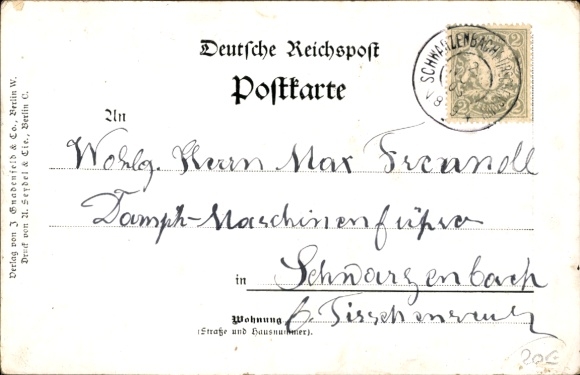 Deutsche Reichspost
Postkarte
An
Wohlg. Herrn Max
Dampf-Maschinenführer
in Schwarzenbach
Wohnung b. Tirschenreuth
(Straße und Hausnummer).
Verlag von J. Gnadenfeld & Co., Berlin W.
Druck von A. Seydel & Cie., Berlin C.
SCHWARZENBACH
2 2
20€